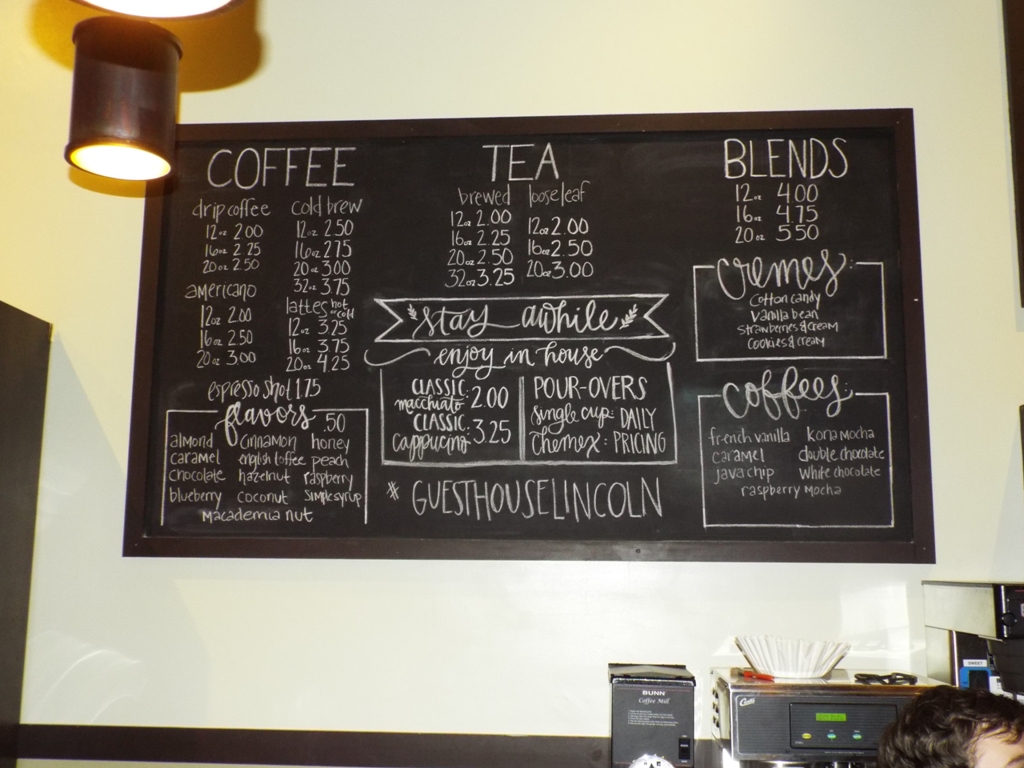 COFFEE
drip coffee
12oz 2.00
16oz 2.25
20oz 2.50
americano
12oz 2.00
16oz 2.50
20oz 3.00
cold brew
12oz 2.50
16oz 2.75
20oz 3.00
32oz 3.75
lattes hot or cold
12oz 3.25
16oz 3.75
20oz 4.25
espresso shot 1.75
flavors .50
almond cinnamon honey
caramel english toffee peach
chocolate hazelnut raspberry
blueberry coconut simple syrup
macademia nut
TEA
brewed
12oz 2.00
16oz 2.25
20oz 2.50
32oz 3.25
loose leaf
12oz 2.00
16oz 2.50
20oz 3.00
stay awhile
enjoy in house
CLASSIC macchiato 2.00
CLASSIC cappucino 3.25
POUR-OVERS
single cup: DAILY
chemex: PRICING
# GUESTHOUSELINCOLN
BLENDS
12oz 4.00
16oz 4.75
20oz 5.50
cremes
cotton candy
vanilla bean
strawberries & cream
cookies & cream
coffees
french vanilla kona mocha
caramel double chocolate
java chip white chocolate
raspberry mocha
BUNN
Coffee Mill
Curtis
SWEET